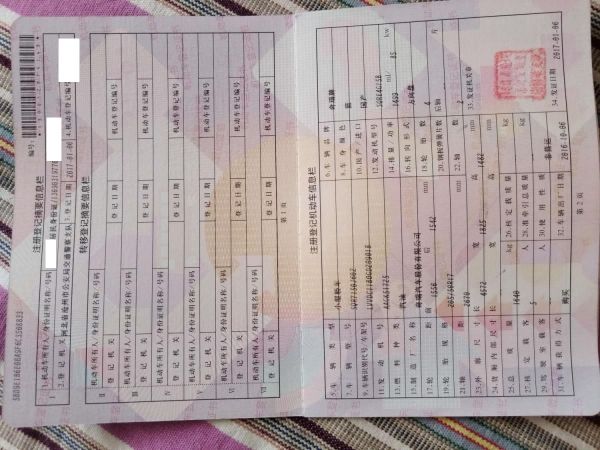 编号:
注册登记摘要信息栏
I
1.机动车所有人/身份证明名称/号码
居民身份证/
2.登记机关
河北省沧州市公安局交通警察支队
3.登记日期
2017-01-06
4.机动车登记编号
转移登记摘要信息栏
II
机动车所有人/身份证明名称/号码
登记机关
登记日期
机动车登记编号
III
机动车所有人/身份证明名称/号码
登记机关
登记日期
机动车登记编号
IV
机动车所有人/身份证明名称/号码
登记机关
登记日期
机动车登记编号
V
机动车所有人/身份证明名称/号码
登记机关
登记日期
机动车登记编号
VI
机动车所有人/身份证明名称/号码
登记机关
登记日期
机动车登记编号
VII
机动车所有人/身份证明名称/号码
登记机关
登记日期
机动车登记编号
第1页
注册登记机动车信息栏
5.车辆类型
小型轿车
6.车辆品牌
奇瑞牌
7.车辆型号
8.车身颜色
蓝
9.车辆识别代号/车架号
10.国产/进口
国产
11.发动机号
12.发动机型号
13.燃料种类
汽油
14.排量/功率
ml/
85
kw
15.制造厂名称
奇瑞汽车股份有限公司
16.转向形式
方向盘
17.轮距
前
1556
后
1542
mm
18.轮胎数
4
19.轮胎规格
205/50R17
20.钢板弹簧片数
后轴
21.轴距
2670
mm
22.轴数
2
23.外廓尺寸
长
4572
宽
1825
高
1482
mm
33.发证机关章
24.货厢内部尺寸
长
宽
高
mm
25.总质量
kg
26.核定载质量
kg
27.核定载客
5
人
28.准牵引总质量
kg
29.驾驶室载客
人
30.使用性质
非营运
31.车辆获得方式
购买
32.车辆出厂日期
2016-10-06
34.发证日期
2017-01-06
第2页